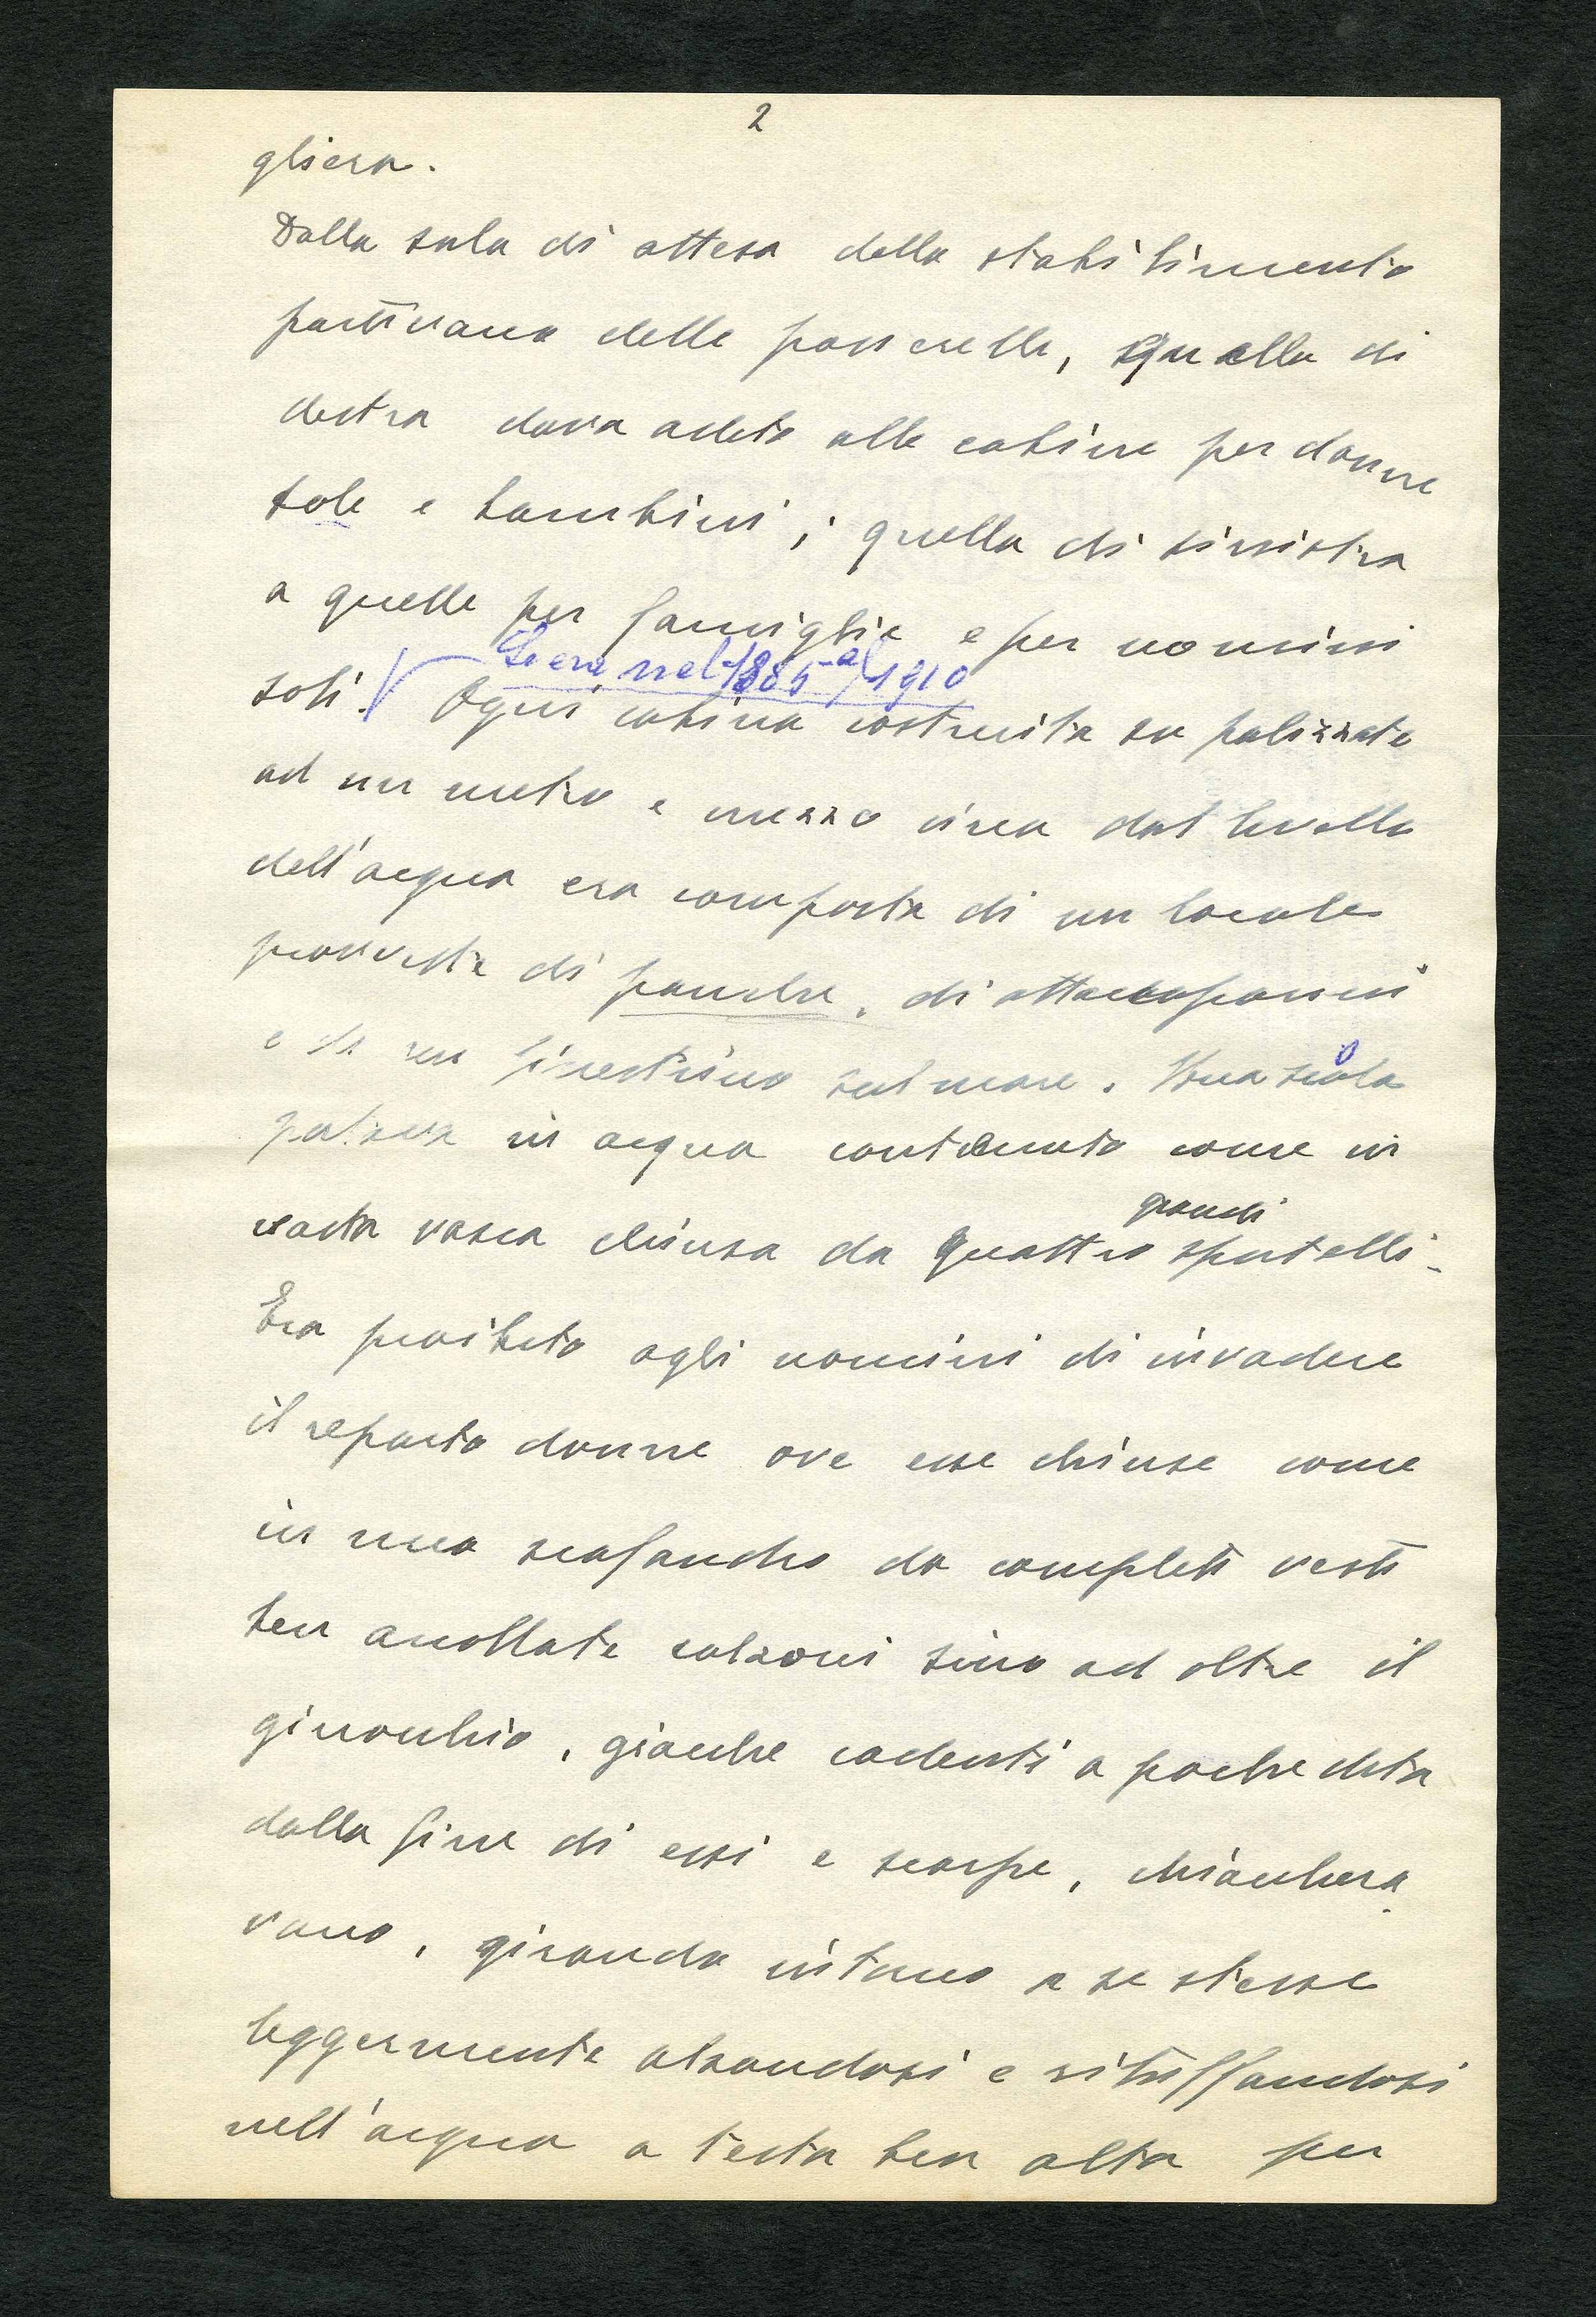 2
gliera.
Dalla sala di attesa dello stabilimento
partivano delle passerelle, quella di
destra dava adito alle cabine per donne
sole e bambini; quella di sinistra
a quelle per famiglie e per uomini
Si era nel 1885-al 1910
soli. Ogni cabina costruita su palizzate
ad un metro e mezzo circa dal livello
dell'acqua era composta di un locale
provvisto di panche, di attaccapanni
e da un finestrino sul mare. Una scala
portava in acqua contenuta come in
grandi
vasta vasca chiusa da quattro sportelli.
Era proibito agli uomini di invadere
il reparto donne ove esse chiuse come
in uno scafandro da completi vesti
ben accollate calzoni sino ad oltre il
ginocchio, giacche cadenti a poche dita
dalla fine di essi e scarpe, chiacchera-
vano, girando intorno a se stesse
leggermente alzandosi e rituffandosi
nell'acqua a testa ben alta per